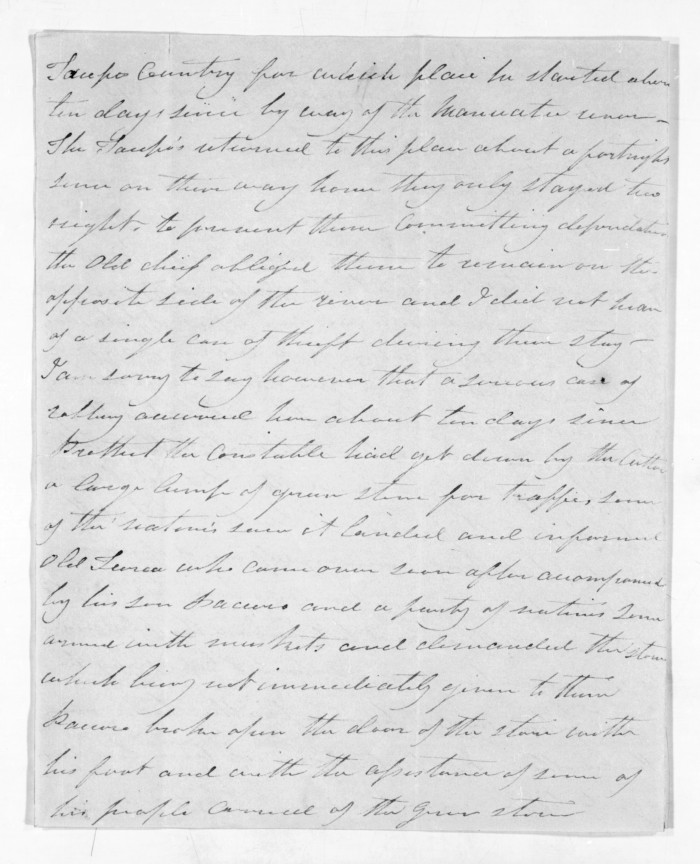 Taupo Country for which place he started about
ten days since by way of the Manuatu river –
The Taupo's returned to this place about a fortnight
since on their way home they only stayed two
nights to prevent them Committing depredations
the Old chief obliged them to remain on the
opposite side of the river and I did not hear
of a single case of theft during their stay –
I am sorry to say however that a serious case of
robbery occurred here about ten days since
the Constable had got down by the Cutter
a large lump of green stone for traffic, some
of the natives saw it landed and informed
Old who came over soon after accompanied
by his son and a party of natives some
armed with muskets and demanded the stone
which being not immediately given to them
broke open the door of the store with
his foot and with the assistance of some of
his people carried of the green stone